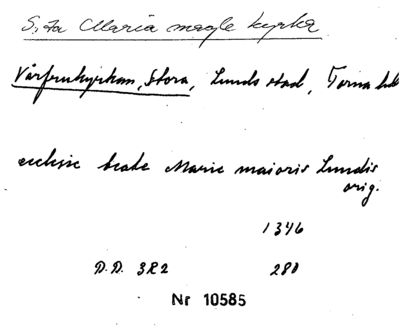 S:ta Maria magle kyrka
Vårfrukyrkan, Stora, Lunds stad, Torna hd
ecclesie beate Marie maioris Lundis
orig.
1346
D.D. 3R2 280
Nr 10585